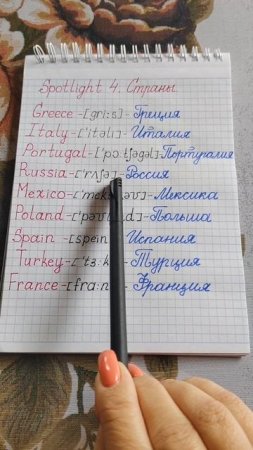 Spotlight 4. Страны
Greece-[gri:s]-Греция
Italy-['itəli]-Италия
Portugal-['pɔ:tʃəgəl]-Португалия
Russia-['rʌʃə]-Россия
Mexico- -Мексика
Poland- -Польша
Spain-[spein]-Испания
Turkey- -Турция
France-[fra:n -Франция